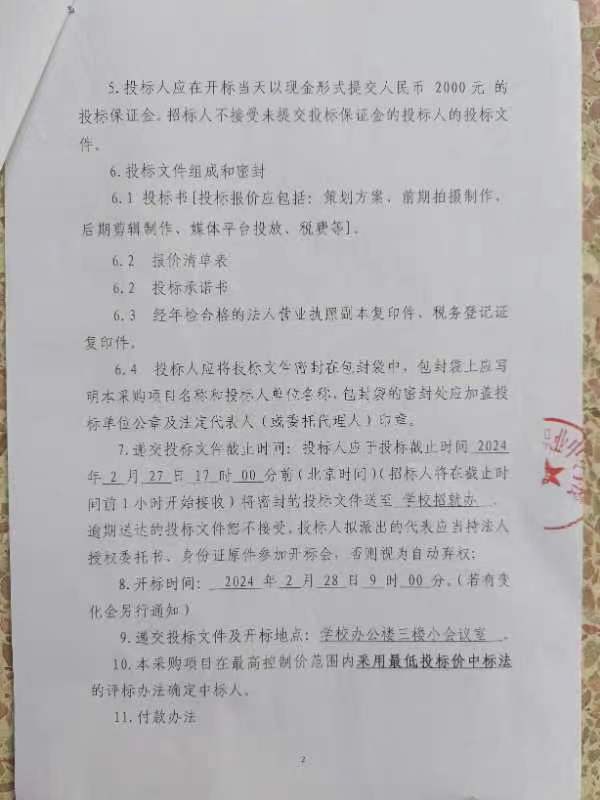 5.投标人应在开标当天以现金形式提交人民币 2000元 的
投标保证金。招标人不接受未提交投标保证金的投标人的投标文
件。
6.投标文件组成和密封
6.1 投标书[投标报价应包括：策划方案、前期拍摄制作、
后期剪辑制作、媒体平台投放、税费等]。
6.2 报价清单表
6.2 投标承诺书
6.3 经年检合格的法人营业执照副本复印件、税务登记证
复印件。
6.4 投标人应将投标文件密封在包封袋中，包封袋上应写
明本采购项目名称和投标人单位名称，包封袋的密封处应加盖投
标单位公章及法定代表人（或委托代理人）印章。
7.递交投标文件截止时间：投标人应于投标截止时间 2024
年 2 月 27 日 17 时 00 分前（北京时间）（招标人将在截止时
间前1小时开始接收）将密封的投标文件送至 学校招就办 。
逾期送达的投标文件恕不接受。投标人拟派出的代表应当持法人
授权委托书、身份证原件参加开标会，否则视为自动弃权；
8.开标时间： 2024 年 2 月 28 日 9 时 00 分。（若有变
化会另行通知）
9.递交投标文件及开标地点：学校办公楼三楼小会议室 。
10.本采购项目在最高控制价范围内采用最低投标价中标法
的评标办法确定中标人。
11.付款办法
2